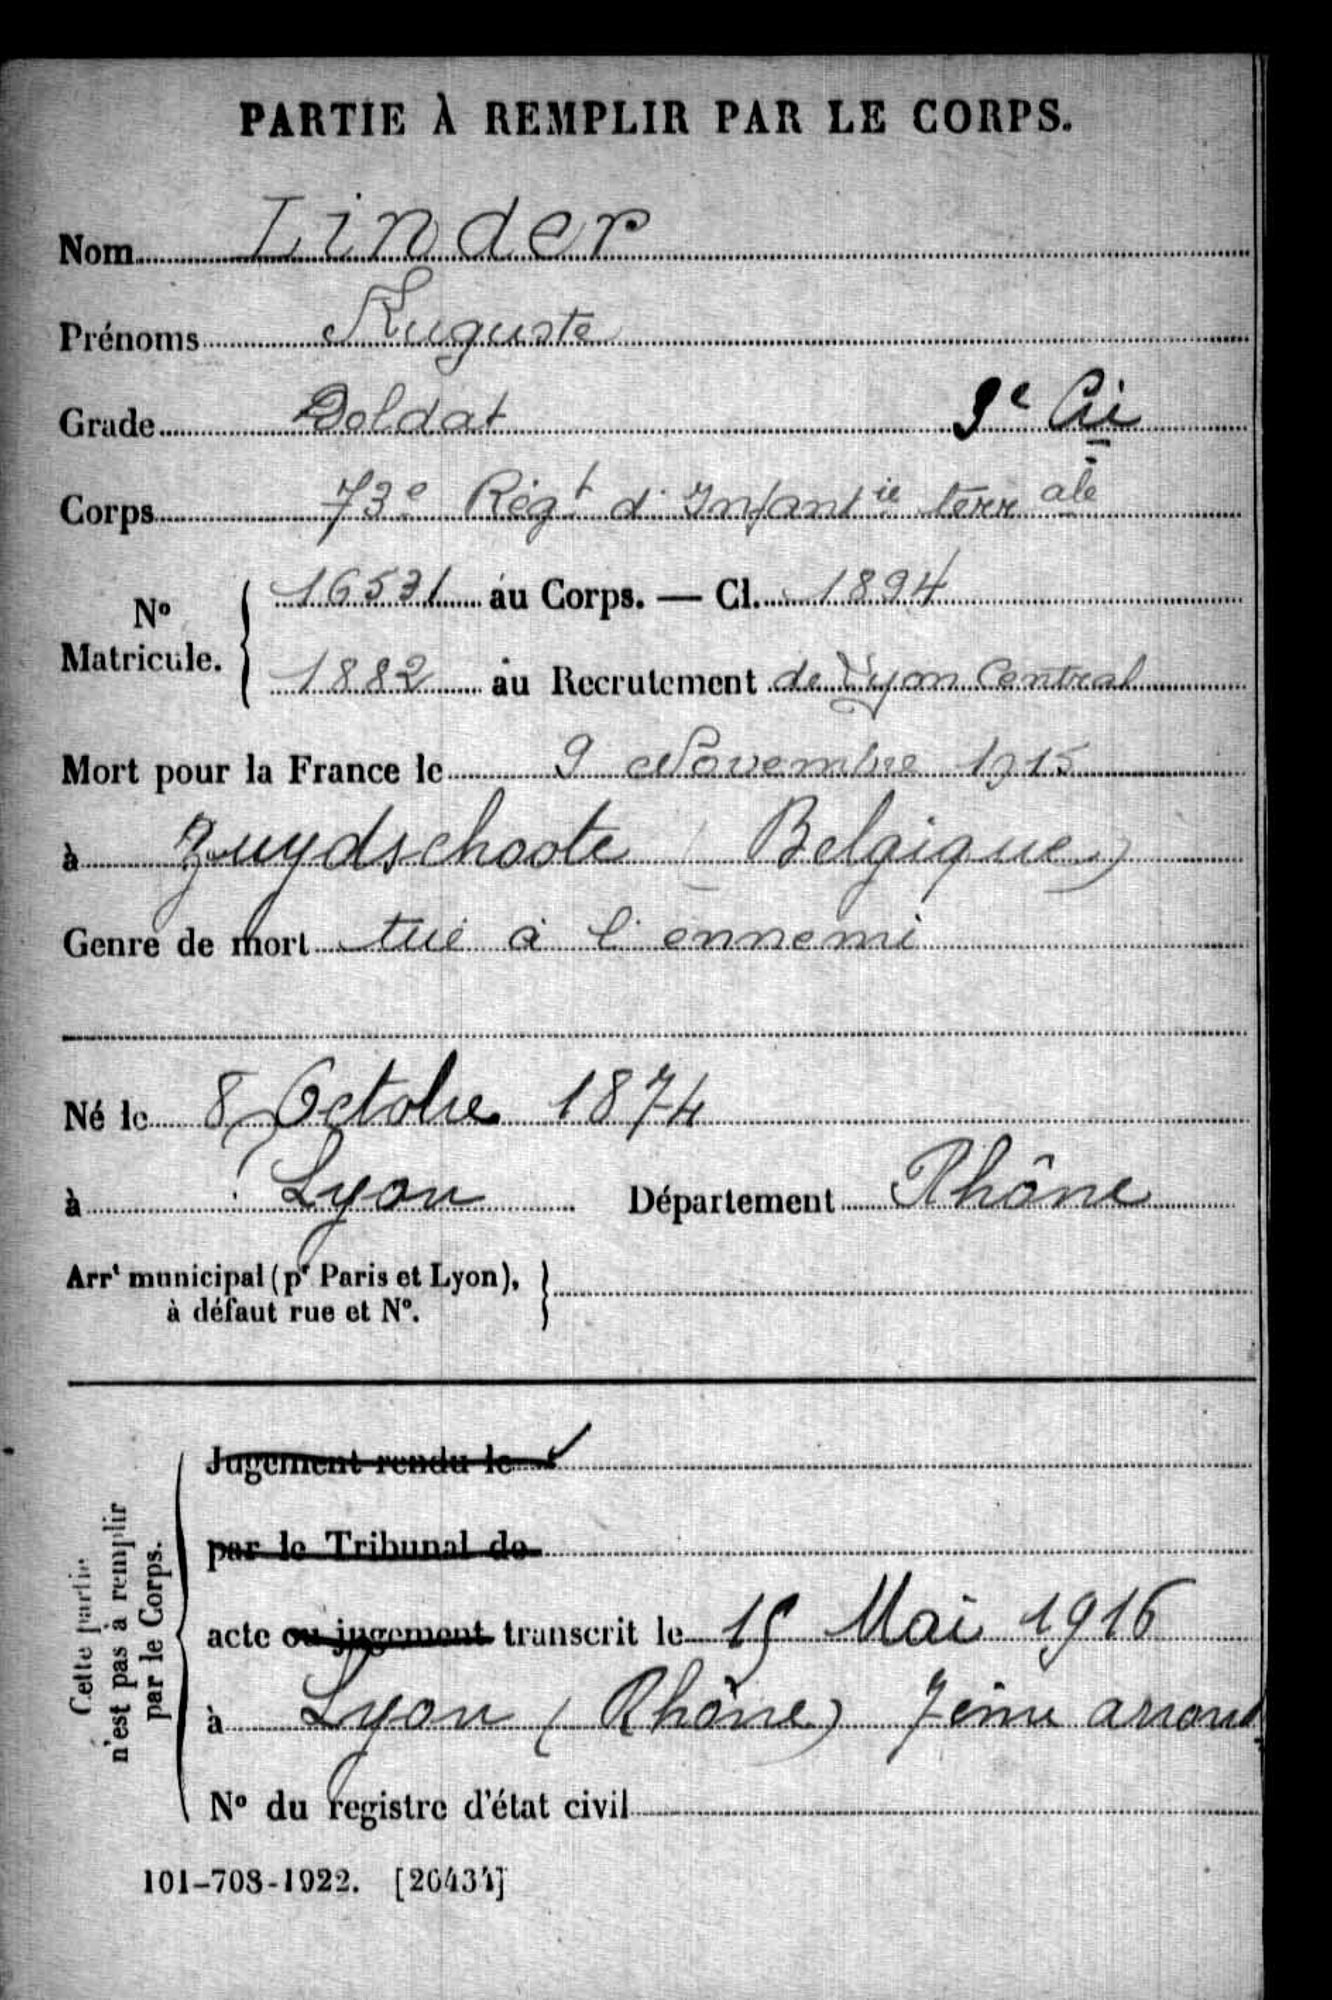 PARTIE À REMPLIR PAR LE CORPS.
Nom Linder
Prénoms Auguste
Grade Soldat 9e Cie
Corps 73e Régt d'Infantie terrale
No Matricule. 16531 au Corps. — Cl. 1894
1882 au Recrutement de Lyon Central
Mort pour la France le 9 Novembre 1915
à Zuydschoote (Belgique)
Genre de mort tué à l'ennemi
Né le 8 Octobre 1874
à Lyon Département Rhône
Arrt municipal (pr Paris et Lyon),
à défaut rue et No.
Cette partie
n'est pas à remplir
par le Corps.
Jugement rendu le
par le Tribunal de
acte ou jugement transcrit le 15 Mai 1916
à Lyon (Rhône) 7ème arrond
No du registre d'état civil
101-708-1922. [26434]